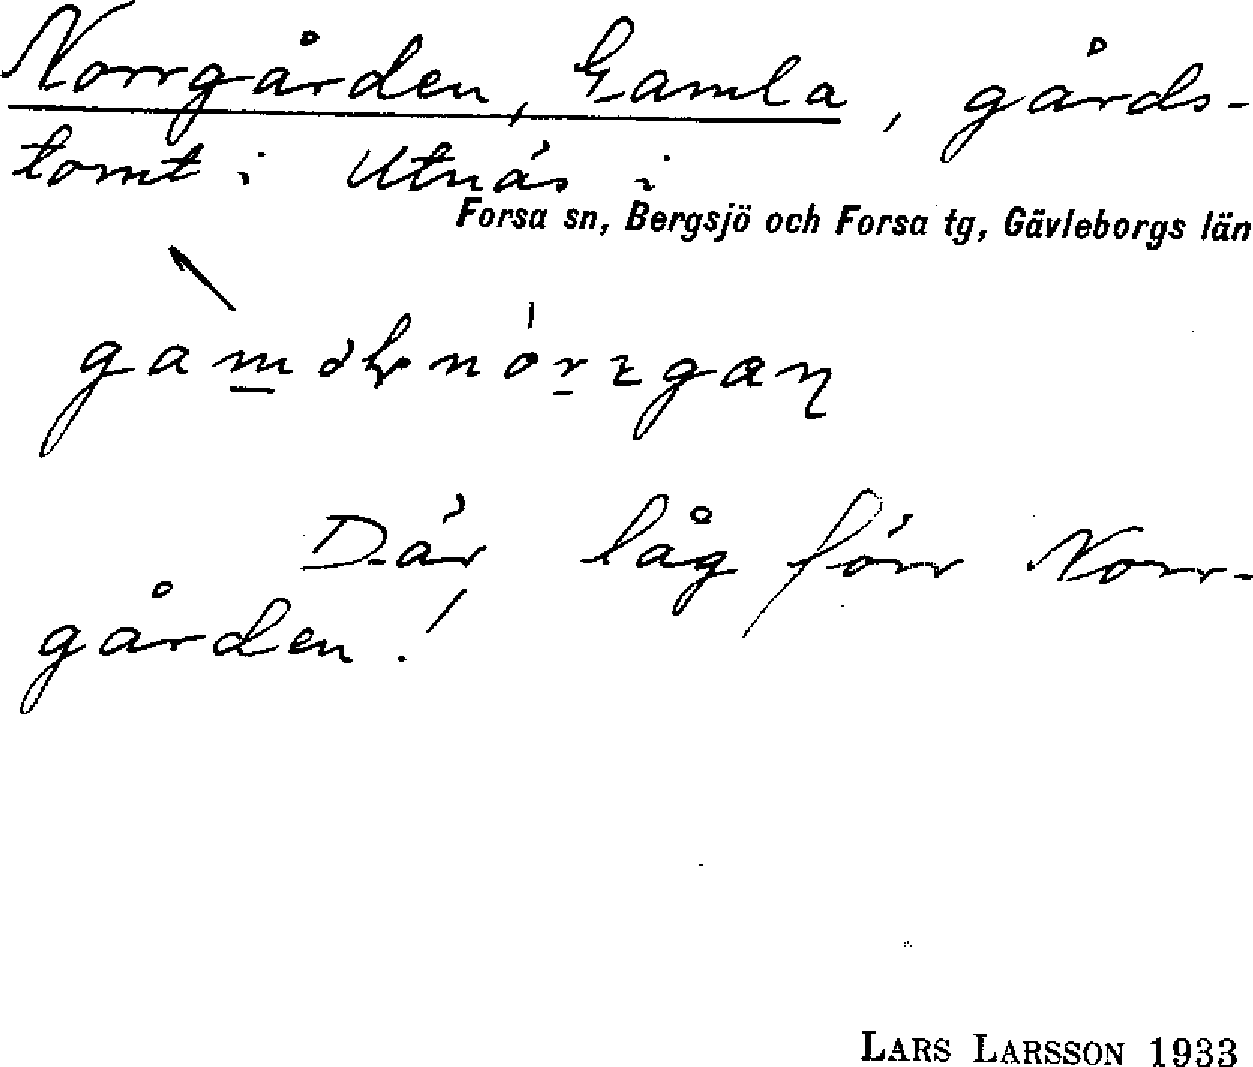 Norrgården, Gamla, gårds-
tomt i Utnäs i
Forsa sn, Bergsjö och Forsa tg, Gävleborgs län
Där låg förr Norr-
gården!
LARS LARSSON 1933